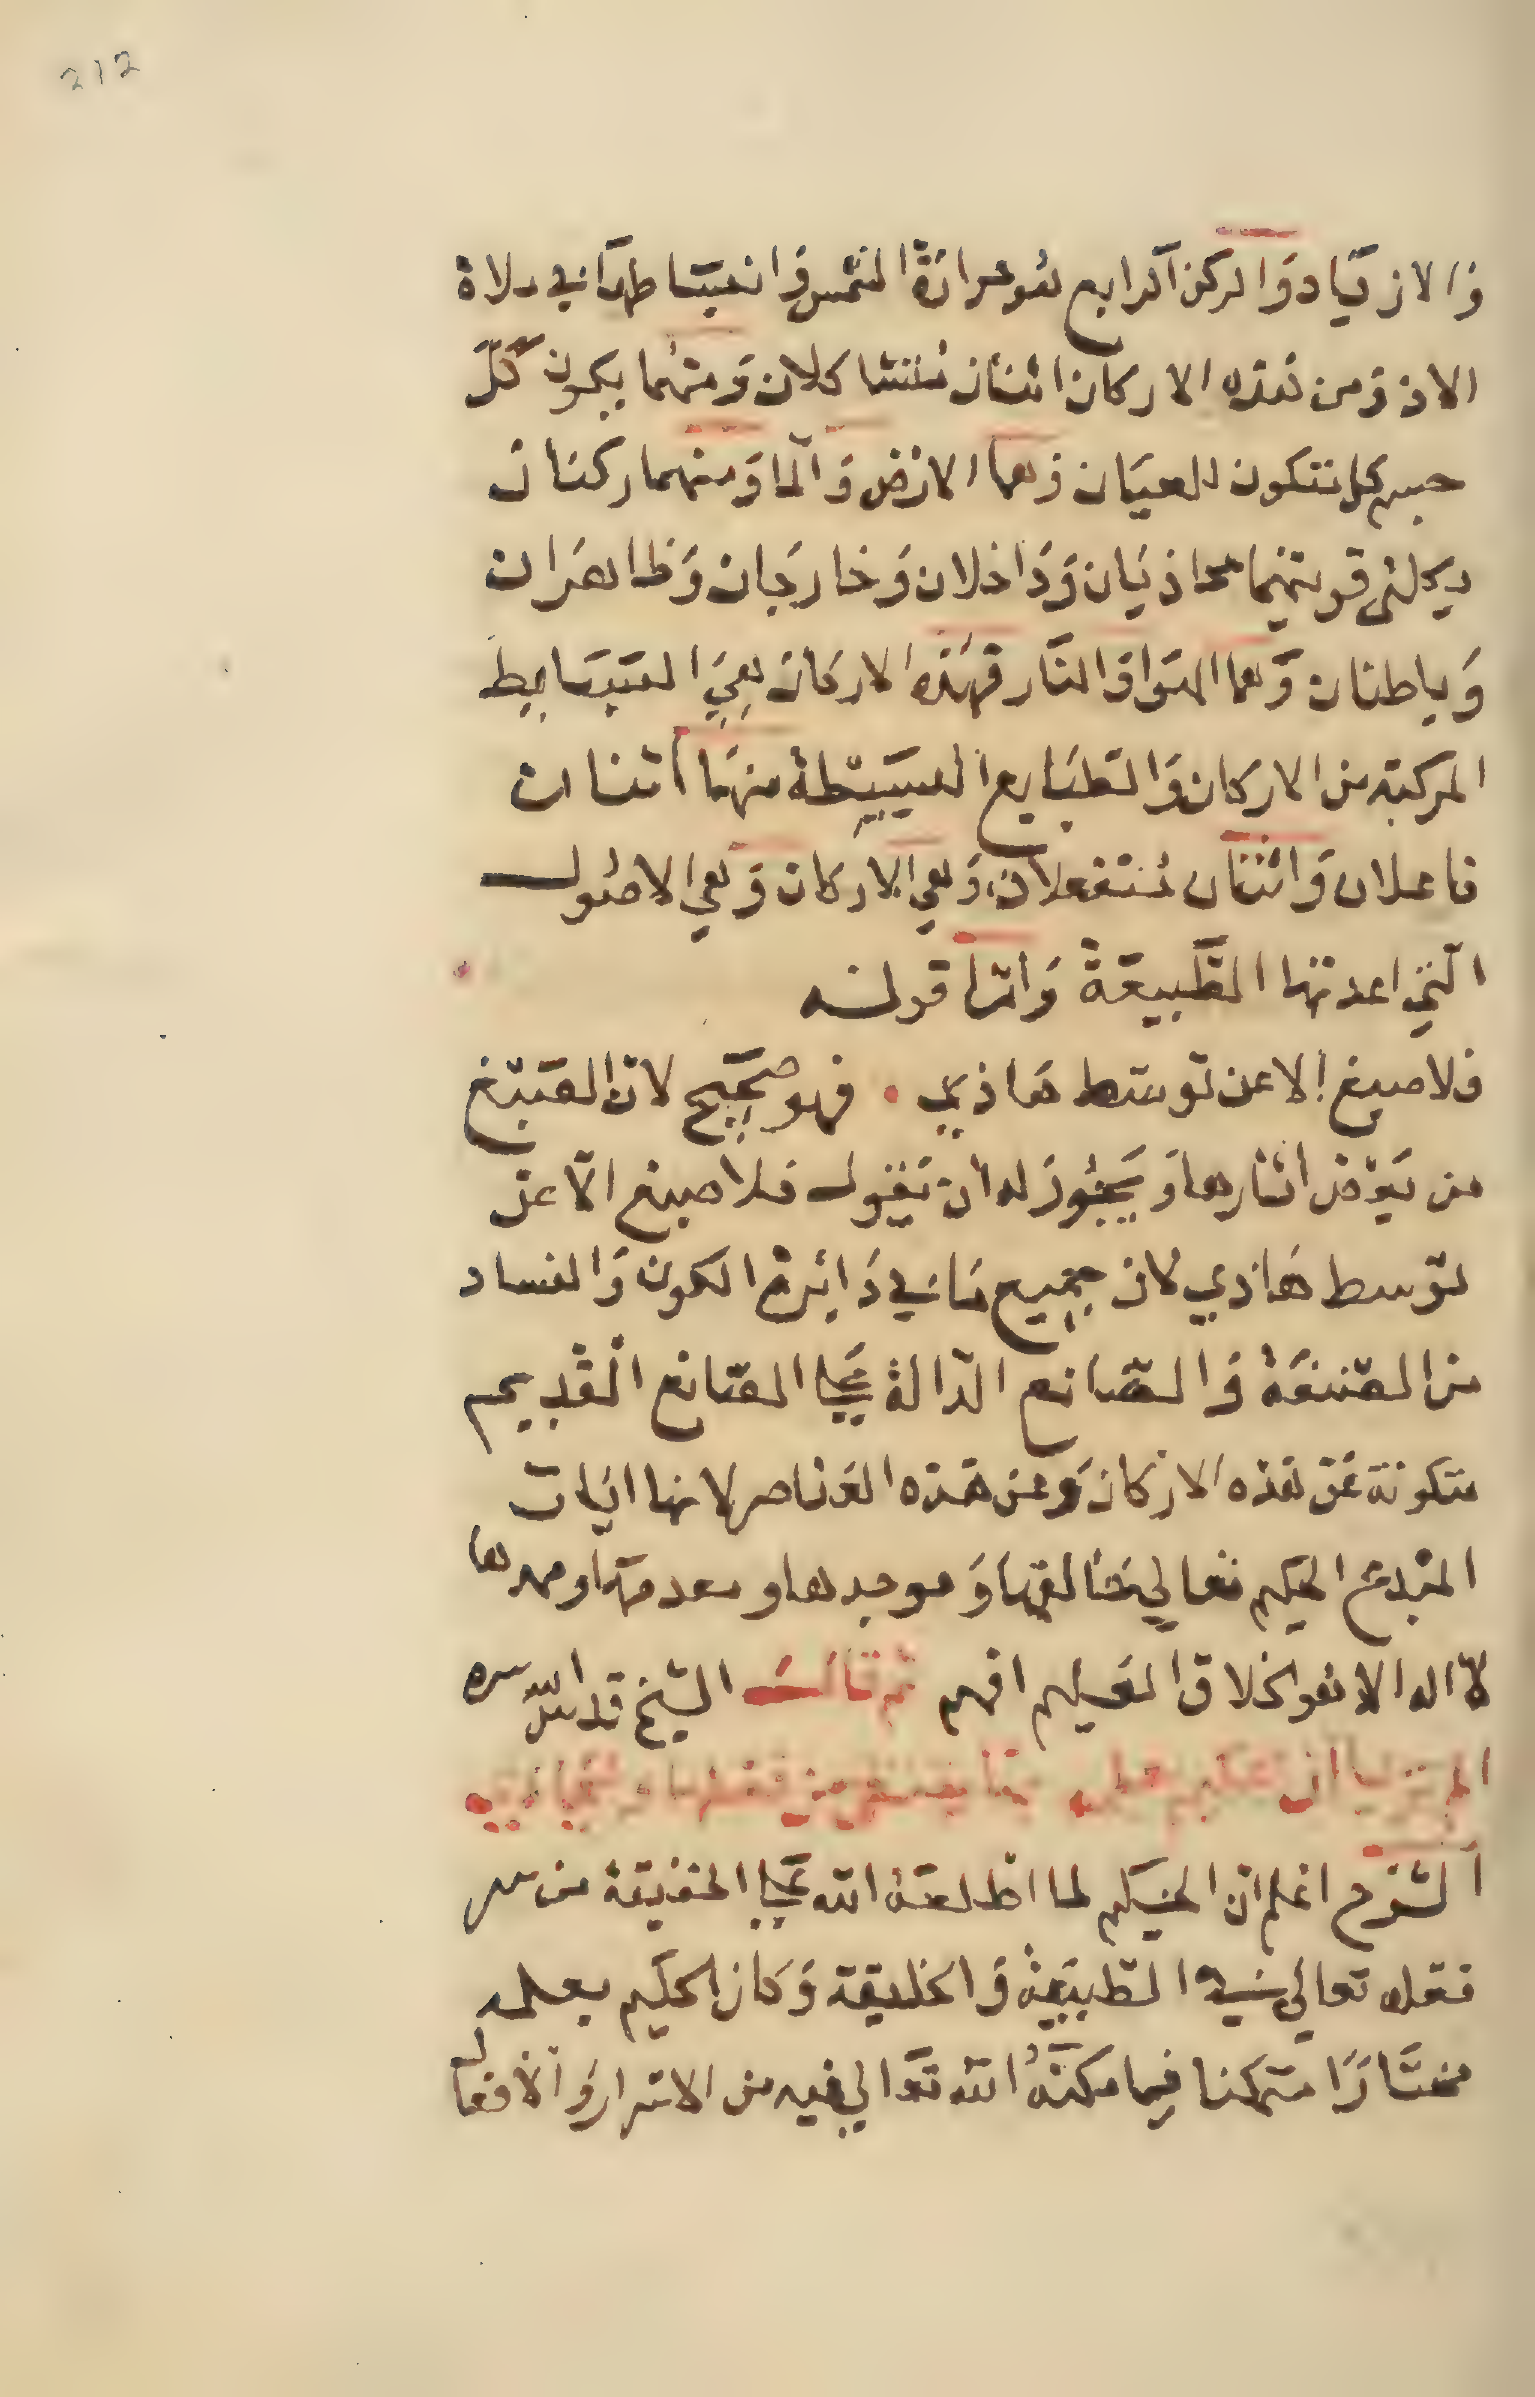 212
والازدياد والركن الرابع هو حرارة الشمس وانبساطها في
الارض ومن هذه الاركان اثنان متشاكلان ومنهما يكون كل
جسم كل متكون للعيان وهما الارض والما ومنهما ركنان
محاذيان وداخلان وخارجان وظاهران
وباطنان وهما الهوا والنار فهذه الاركان هي البسايط
المركبة من الاركان والطبايع البسيطة منها اثنان
فاعلان واثنان منفعلان وهي الاركان وهي الاصول
التي اعدتها الطبيعة واما قوله
فلا صبغ الا عن توسط هاذي . فهو صحيح لان الصبغ
من بعض اثارها ويجوز له ان يقول فلا صبغ الا عن
توسط هاذي لان جميع ما في دائرة الكون والفساد
من الصنعة والصانع الدالة على الصانع القديم
متكونة عن هذه الاركان وعن هذه العناصر لانها ايات
المبدع الحكيم تعالى خالقها وموجدها ومعدمها
لا اله الا هو الخلاق العليم افهم ثم قال الشيخ قدس الله سره
الم تريا ان
الشرح اعلم ان الحكيم لما اطلعه الله على الحقيقة من سر
فعله تعالى في الطبيعة والخليقة وكان الحكيم بعلمه
مختارا متمكنا فيما مكنه الله تعالى فيه من الاسرار والافعال